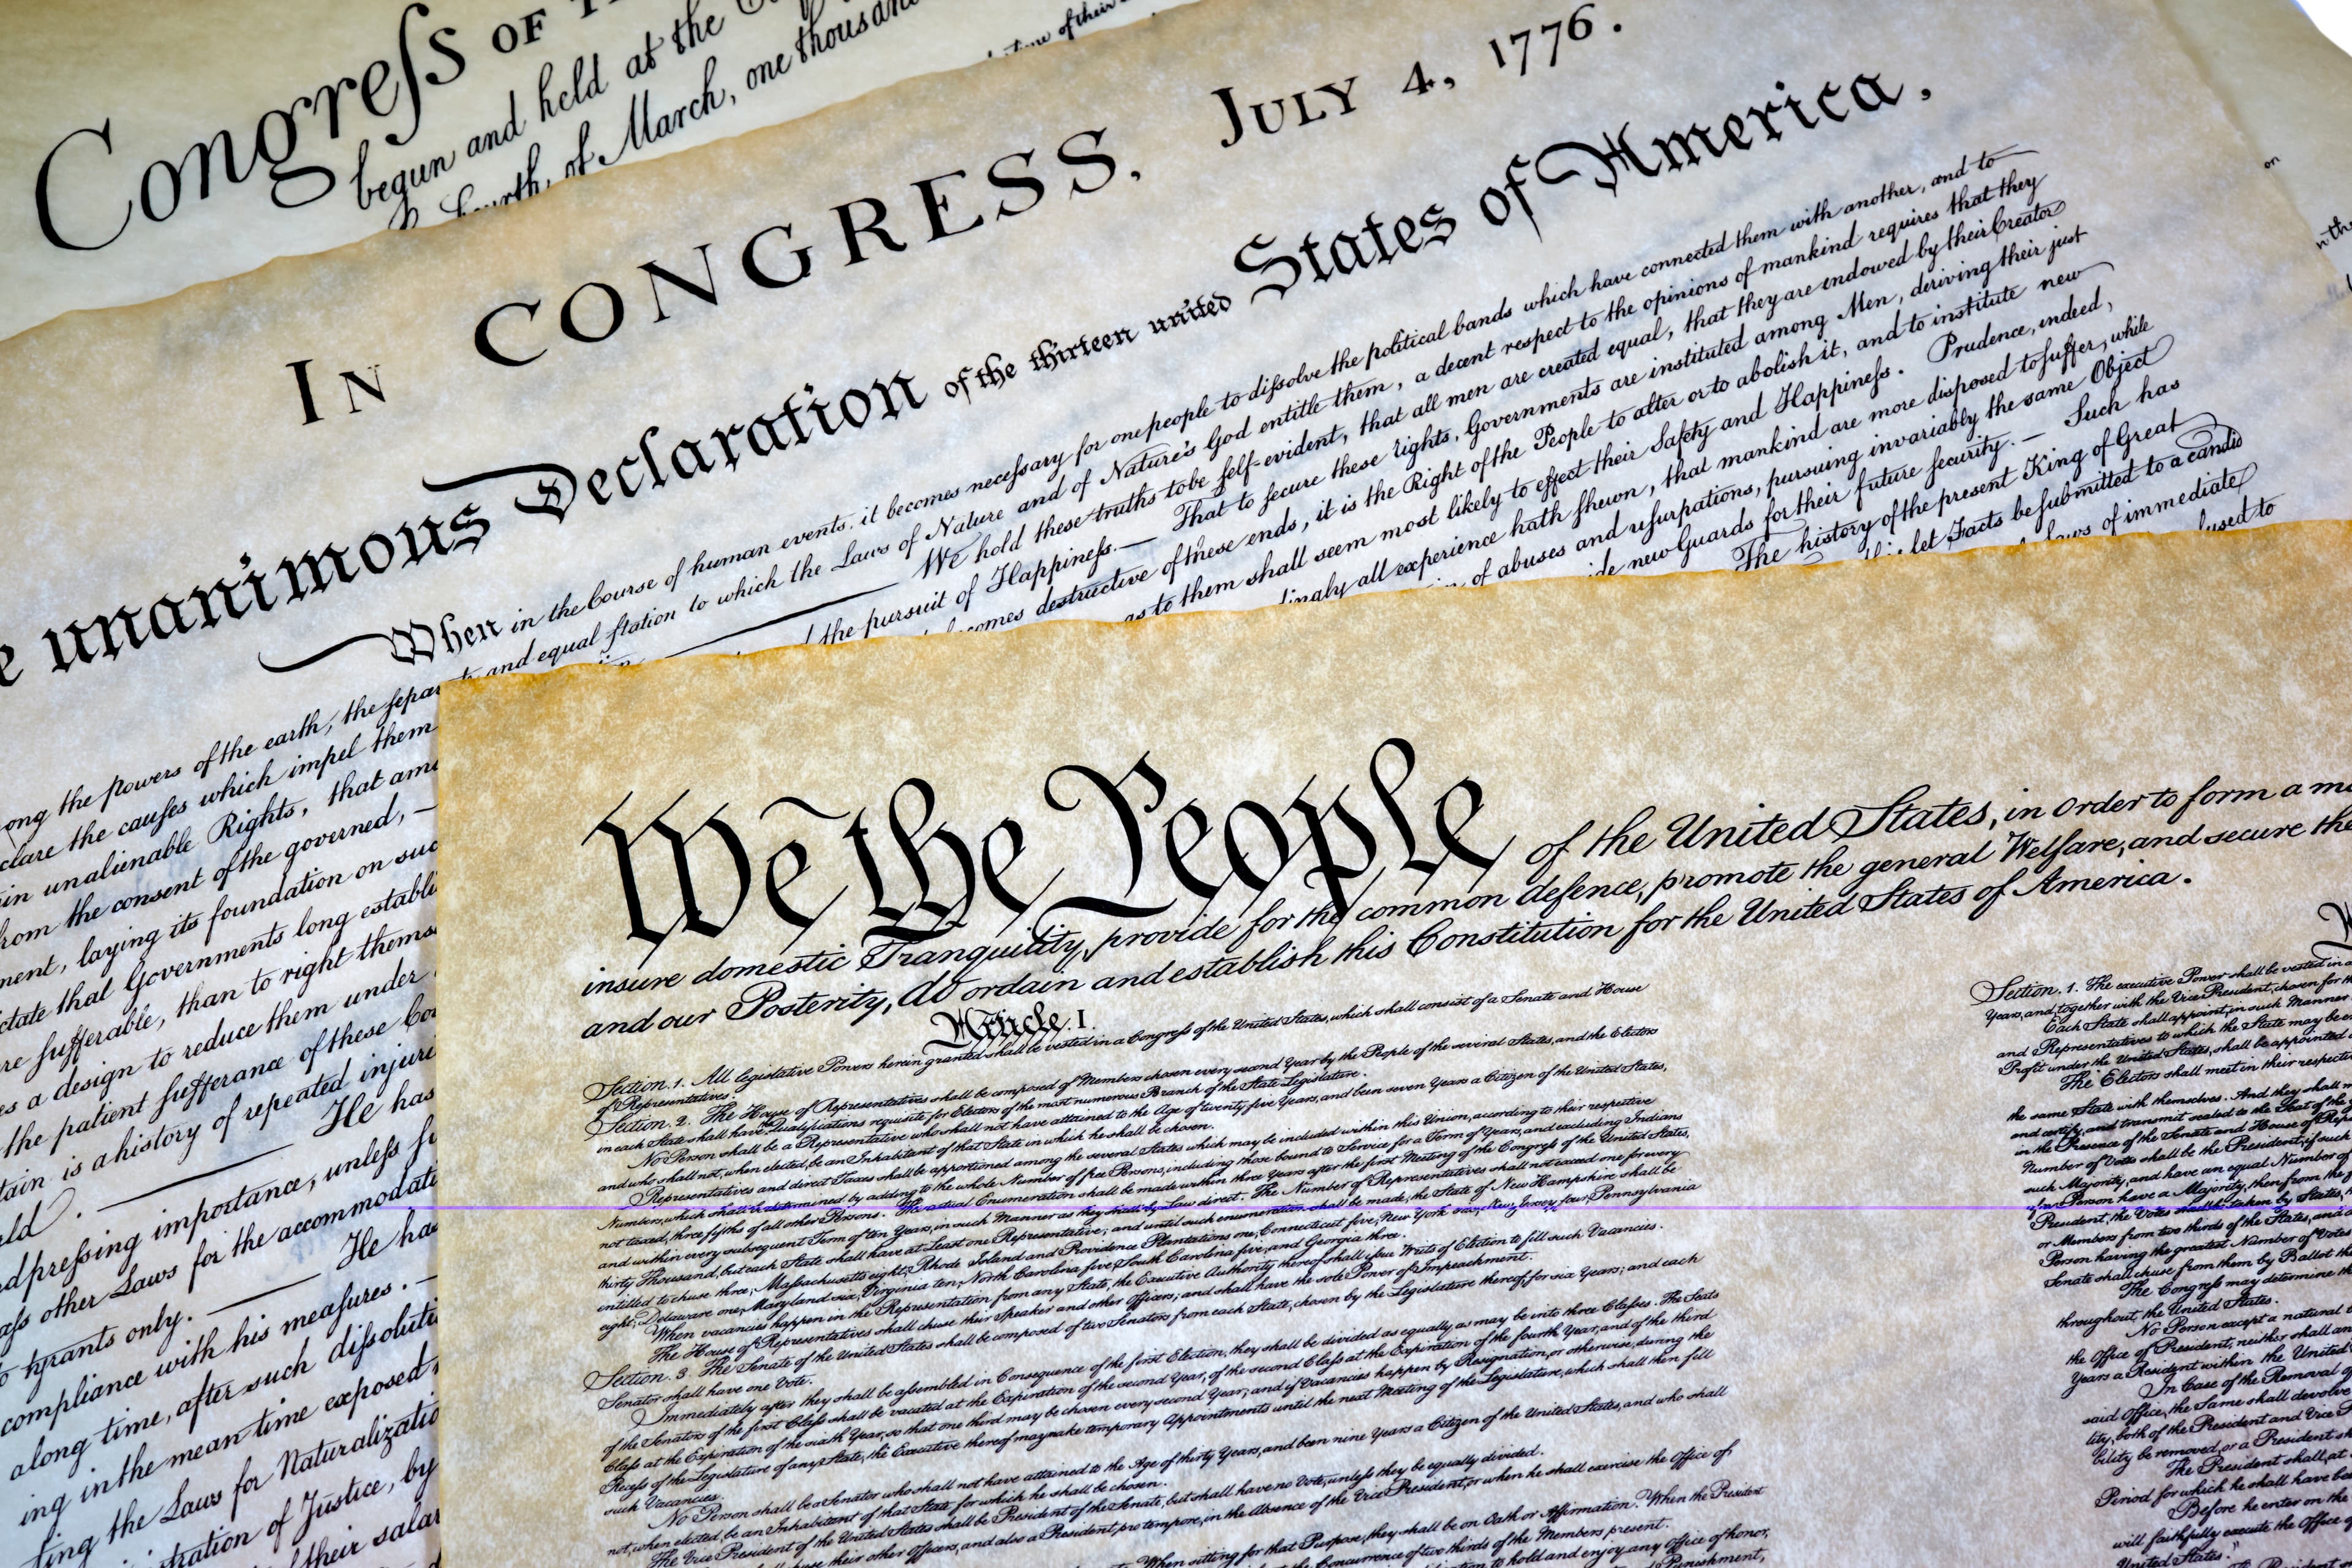 Congreſs OF
begun and held at the
Fourth of March, one thousand
time of their
on
IN CONGRESS, JULY 4, 1776.
unanimous Declaration of the thirteen united States of America,
When in the Course of human events, it becomes neceſsary for one people to diſsolve the political bands which have connected them with another, and to
ong the powers of the earth, the ſepar and equal ſtation to which the Laws of Nature and of Nature's God entitle them, a decent respect to the opinions of mankind requires that they
clare the cauſes which impel them We hold these truths to be ſelf-evident, that all men are created equal, that they are endowed by their Creator
in unalienable Rights, that amo the pursuit of Happineſs. — That to ſecure these rights, Governments are instituted among Men, deriving their just
rom the consent of the governed, — comes destructive of these ends, it is the Right of the People to alter or to abolish it, and to institute new
ment, laying its foundation on suc as to them shall seem most likely to effect their Safety and Happineſs. Prudence, indeed,
ctate that Governments long establi dingly all experience hath ſhewn, that mankind are more disposed to ſuffer, while
re ſufferable, than to right thems of abuses and uſurpations, pursuing invariably the same Object
es a design to reduce them under ide new Guards for their future ſecurity. — Such has
the patient ſufferance of these Co The history of the present King of Great
tain is a history of repeated injuri let Facts be ſubmitted to a candid
ld. He has Laws of immediate
d preſsing importance, unleſs ſu fused to
aſs other Laws for the accommodati
tyrants only. He ha
compliance with his meaſures. —
a long time, after such diſsoluti
ing in the mean time exposed
ting the Laws for Naturalizatio
tration of Justice, by
their salar
We the People of the United States, in Order to form a mo
insure domestic Tranquility, provide for the common defence, promote the general Welfare, and secure the
and our Posterity, do ordain and establish this Constitution for the United States of America.
Article. I.
Section. 1. All legislative Powers herein granted shall be vested in a Congreſs of the United States, which shall consist of a Senate and House
of Representatives.
Section. 2. The House of Representatives shall be composed of Members chosen every second Year by the People of the several States, and the Electors
in each State shall have Qualifications requisite for Electors of the most numerous Branch of the State Legislature.
No Person shall be a Representative who shall not have attained to the Age of twenty five Years, and been seven Years a Citizen of the United States,
and who shall not, when elected, be an Inhabitant of that State in which he shall be chosen.
Representatives and direct Taxes shall be apportioned among the several States which may be included within this Union, according to their respective
Numbers, which shall be determined by adding to the whole Number of free Persons, including those bound to Service for a Term of Years, and excluding Indians
not taxed, three fifths of all other Persons. The actual Enumeration shall be made within three Years after the first Meeting of the Congreſs of the United States,
and within every subsequent Term of ten Years, in such Manner as they shall by Law direct. The Number of Representatives shall not exceed one for every
thirty Thousand, but each State shall have at Least one Representative; and until such enumeration shall be made, the State of New Hampshire shall be
entitled to chuse three, Maſsachusetts eight, Rhode Island and Providence Plantations one, Connecticut five, New York six, New Jersey four, Pennsylvania
eight, Delaware one, Maryland six, Virginia ten, North Carolina five, South Carolina five, and Georgia three.
When vacancies happen in the Representation from any State, the Executive Authority thereof shall iſsue Writs of Election to fill such Vacancies.
The House of Representatives shall chuse their Speaker and other Officers; and shall have the sole Power of Impeachment.
Section. 3. The Senate of the United States shall be composed of two Senators from each State, chosen by the Legislature thereof, for six Years; and each
Senator shall have one Vote.
Immediately after they shall be aſsembled in Consequence of the first Election, they shall be divided as equally as may be into three Claſses. The Seats
of the Senators of the first Claſs shall be vacated at the Expiration of the second Year, of the second Claſs at the Expiration of the fourth Year, and of the third
Claſs at the Expiration of the sixth Year, so that one third may be chosen every second Year; and if Vacancies happen by Resignation, or otherwise, during the
Receſs of the Legislature of any State, the Executive thereof may make temporary Appointments until the next Meeting of the Legislature, which shall then fill
such Vacancies.
No Person shall be a Senator who shall not have attained to the Age of thirty Years, and been nine Years a Citizen of the United States, and who shall
not, when elected, be an Inhabitant of that State for which he shall be chosen.
The Vice President of the United States shall be President of the Senate, but shall have no Vote, unleſs they be equally divided.
chuse their other Officers, and also a President pro tempore, in the Absence of the Vice President, or when he shall exercise the Office of
When sitting for that Purpose, they shall be on Oath or Affirmation. When the President
the Concurrence of two thirds of the Members present.
to hold and enjoy any Office of honor,
Punishment,
Section. 1. The executive Power shall be vested in a
Years, and, together with the Vice President, chosen for th
Each State shall appoint, in such Manner
and Representatives to which the State may be en
Profit under the United States, shall be appointed
The Electors shall meet in their respecti
the same State with themselves. And they shall m
and certify, and transmit sealed to the Seat of the
in the Presence of the Senate and House of Repre
Number of Votes shall be the President, if such
such Majority, and have an equal Number of
no Person have a Majority, then from the
President, the Votes shall be taken by States,
or Members from two thirds of the States, and a
Person having the greatest Number of Votes
Senate shall chuse from them by Ballot the
The Congreſs may determine th
throughout the United States.
No Person except a natural
the Office of President; neither shall an
Years a Resident within the United
In Case of the Removal of
said Office, the Same shall devolve
lity, both of the President and Vice
bility be removed, or a President sh
The President shall, at
Period for which he shall have be
Before he enter on the
will faithfully execute the Office of
United States."